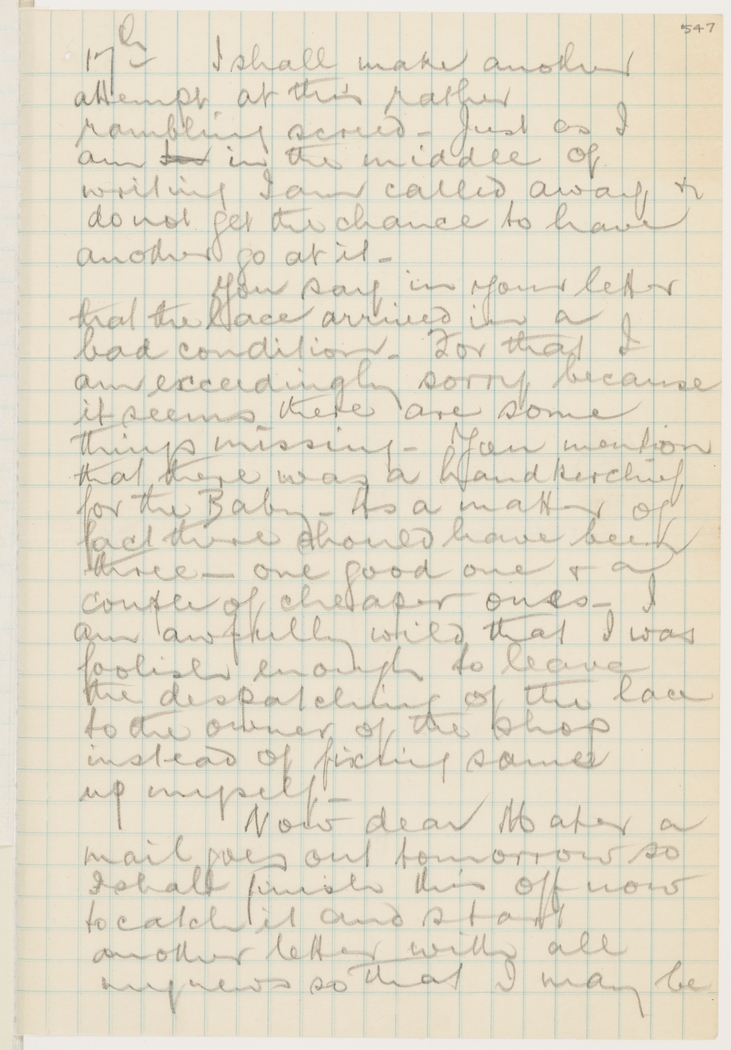 547
17th I shall make another
attempt at this rather
rambling screed - Just as I
am in the middle of
writing I am called away &
do not get the chance to have
another go at it -
You say in your letter
that the lace arrived in a
bad condition - For that I
am exceedingly sorry because
it seems there are some
things missing - You mention
that there was a handkerchief
for the Baby - As a matter of
fact there should have been
three - one good one & a
couple of cheaper ones - I
am awfully wild that I was
foolish enough to leave
the despatching of the lace
to the owner of the shop
instead of fixing same
up myself -
Now dear Mater a
mail goes out tomorrow so
I shall finish this off now
to catch it and start
another letter with all
my news so that I may be